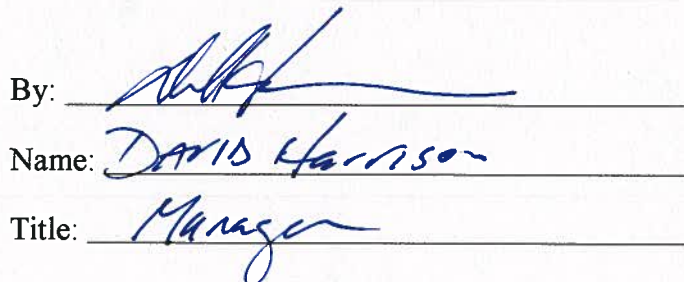 By:
Name: DAVID Harrison
Title: Manager